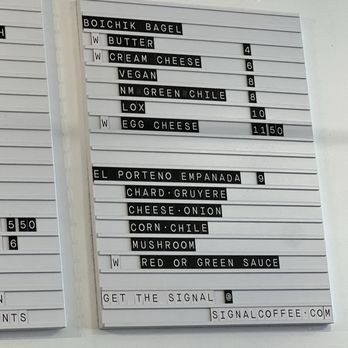 BOICHIK BAGEL
W BUTTER 4
W CREAM CHEESE 6
VEGAN 8
NM GREEN CHILE 8
LOX 10
W EGG CHEESE 11 50
EL PORTENO EMPANADA 9
CHARD·GRUYERE
CHEESE·ONION
CORN·CHILE
MUSHROOM
W RED OR GREEN SAUCE
GET THE SIGNAL @
SIGNALCOFFEE·COM
H
5 50
6
N
NTS